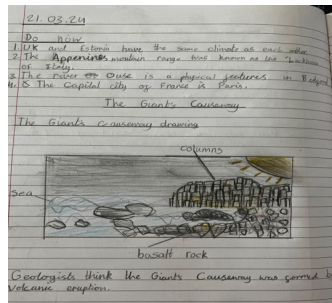 21.03.24
Do now
1. UK and Estonia have the same climate as each other
2. The Appenines mountain range was known as the "backbone
of Italy.
3. The river Ouse is a physical features in Bedford
4. The Capital city of France is Paris.
The Giant's Causeway
The Giants Causeway drawing
columns
sea
basalt rock
Geologists think the Giants Causeway was formed b
volcanic eruption.